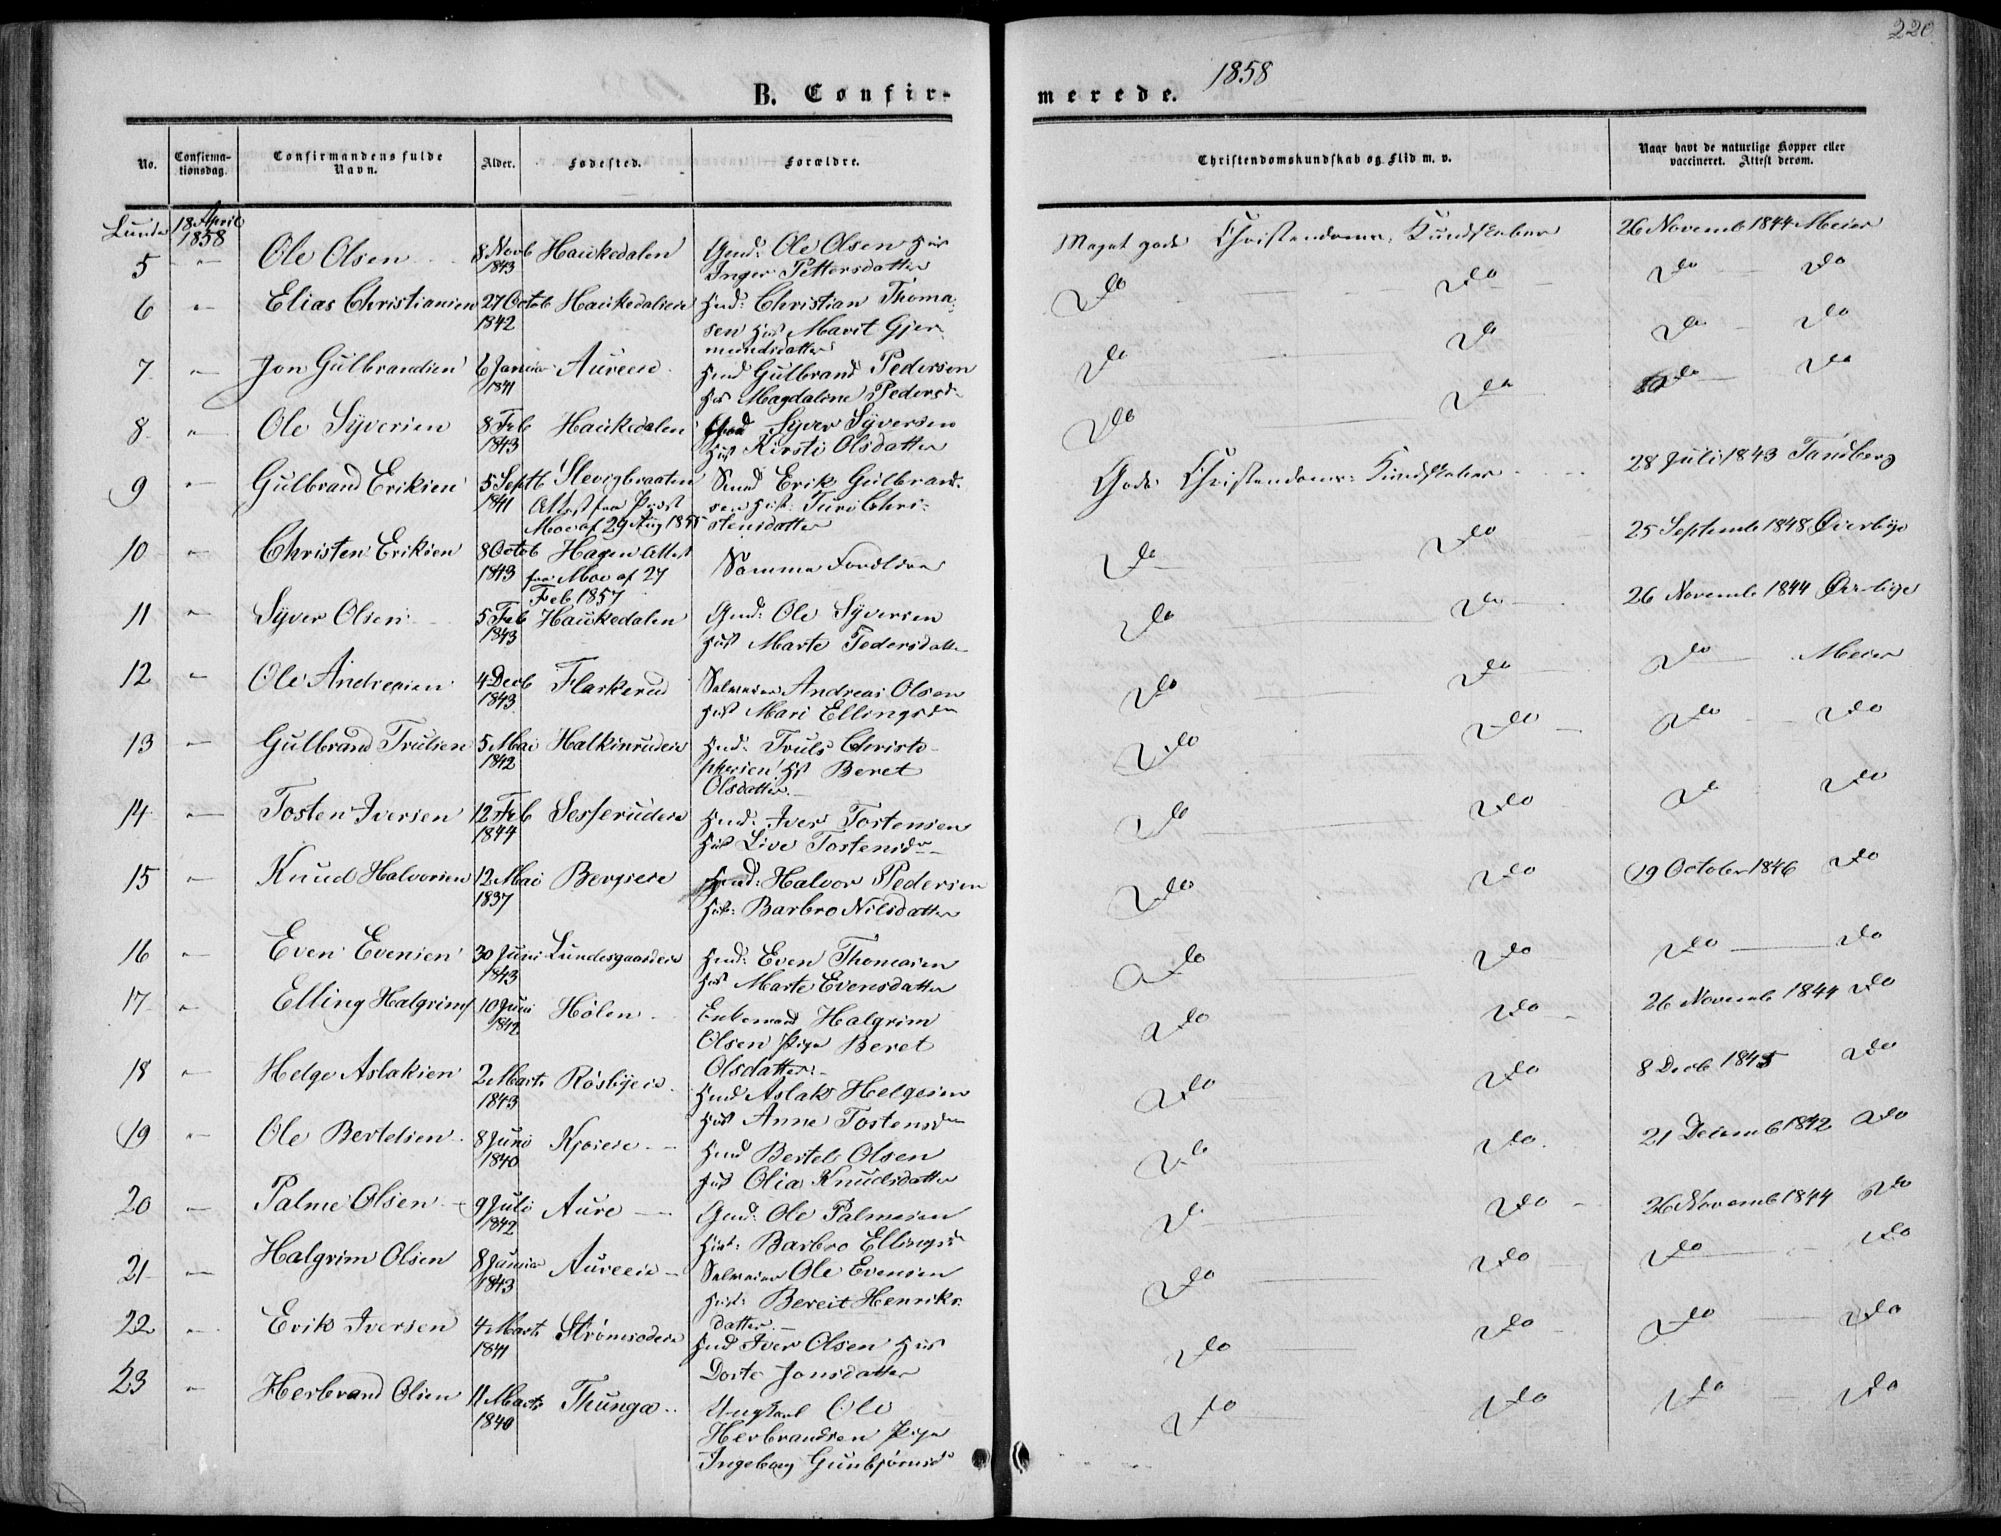 220
1858
B. Confir-
merede.
No.
Confirma-
tionsdag.
Confirmandens fulde
Navn.
Alder.
Fødested.
Forældre.
Christendomskundskab og Flid m. v.
Naar havt de naturlige Kopper eller
vaccineret. Attest derom.
Lunde 18 April
1858
5 " Ole Olsen 8 Novb Haukedalen Gmd: Ole Olsen
1843 Inger Pettersdatter
Meget gode Christendoms Kundskaber 26 Novemb 1844 Meier
6 " Elias Christiansen 27 Octob Haukedalseie Hmd: Christian Thoma-
1842 sen Marit Gjer-
mundsdatter
Do Do Do Do
7 " Jon Gulbrandsen 6 Januar Aureeie Hmd Gulbrand Pedersen
1841 Magdalene Pedersd
Do Do Do Do
8 " Ole Syversen 8 Feb Haukedalen Syver Syversen
1843 Kirsti Olsdatter
Do Do Do Do
9 " Gulbrand Eriksen 5 Septb Slevigbraaten Erik Gulbrand-
1841 Attest fra Præst sen Turi Chri-
Moe af 29 Aug 1855 stensdatter
Gode Christendoms Kundskaber 28 Juli 1843 Tandberg
10 " Christen Eriksen 8 Octob Hagen Attest Samme Forældre
1843 fra Moe af 27
Feb 1857
Do Do 25 Septemb 1848 Øverbye
11 " Syver Olsen 5 Feb Haukedalen Gmd: Ole Syversen
1843 Marte Pedersdatter
Do Do 26 Novemb 1844 Øverbye
12 " Ole Andreasen 4 Decb Flaskerud Selveier Andreas Olsen
1843 Mari Ellingsdr
Do Do Do Meier
13 " Gulbrand Trulsen 5 Mai Halkinrudeie Hmd: Truls Christo-
1842 phersen Beret
Olsdatter
Do Do Do Do
14 " Tosten Iversen 12 Feb Sesserudeie Hmd: Iver Tostensen
1844 Live Tostensdr
Do Do Do Do
15 " Knud Halvorsen 12 Mai Bergseie Hmd: Halvor Pedersen
1837 Barbro Nilsdatter
Do Do 19 October 1846 Do
16 " Even Evensen 30 Juni Lundesgaardeie Hmd: Even Thomasen
1843 Marte Evensdatter
Do Do Do Do
17 " Elling Halgrims 10 Juni Hølen Enkemand Halgrim
1842 Olsen Pige Beret
Olsdatter
Do Do 26 Novemb 1844 Do
18 " Helge Aslaksen 2 Marts Røsbyeie Hmd Aslak Helgesen
1843 Anne Tostensdr
Do Do 8 Decb 1845 Do
19 " Ole Bertelsen 8 Juni Kjoseie Hmd Bertel Olsen
1840 Olia Knudsdatter
Do Do 21 Decemb 1842 Do
20 " Palme Olsen 9 Juli Aure Gmd: Ole Palmesen
1842 Barbro Ellingsd
Do Do 26 Novemb 1844 Do
21 " Halgrim Olsen 8 Januar Aureeie Selveier Ole Evensen
1843 Bereit Henriks-
datter
Do Do Do Do
22 " Erik Iversen 4 Marts Strømsodeie Hmd Iver Olsen
1841 Dorte Jonsdatter
Do Do Do Do
23 " Herbrand Olsen 11 Marts Thunga Ungkarl Ole
1840 Herbrandsen Pige
Ingeborg Gunbjørnsd
Do Do Do Do